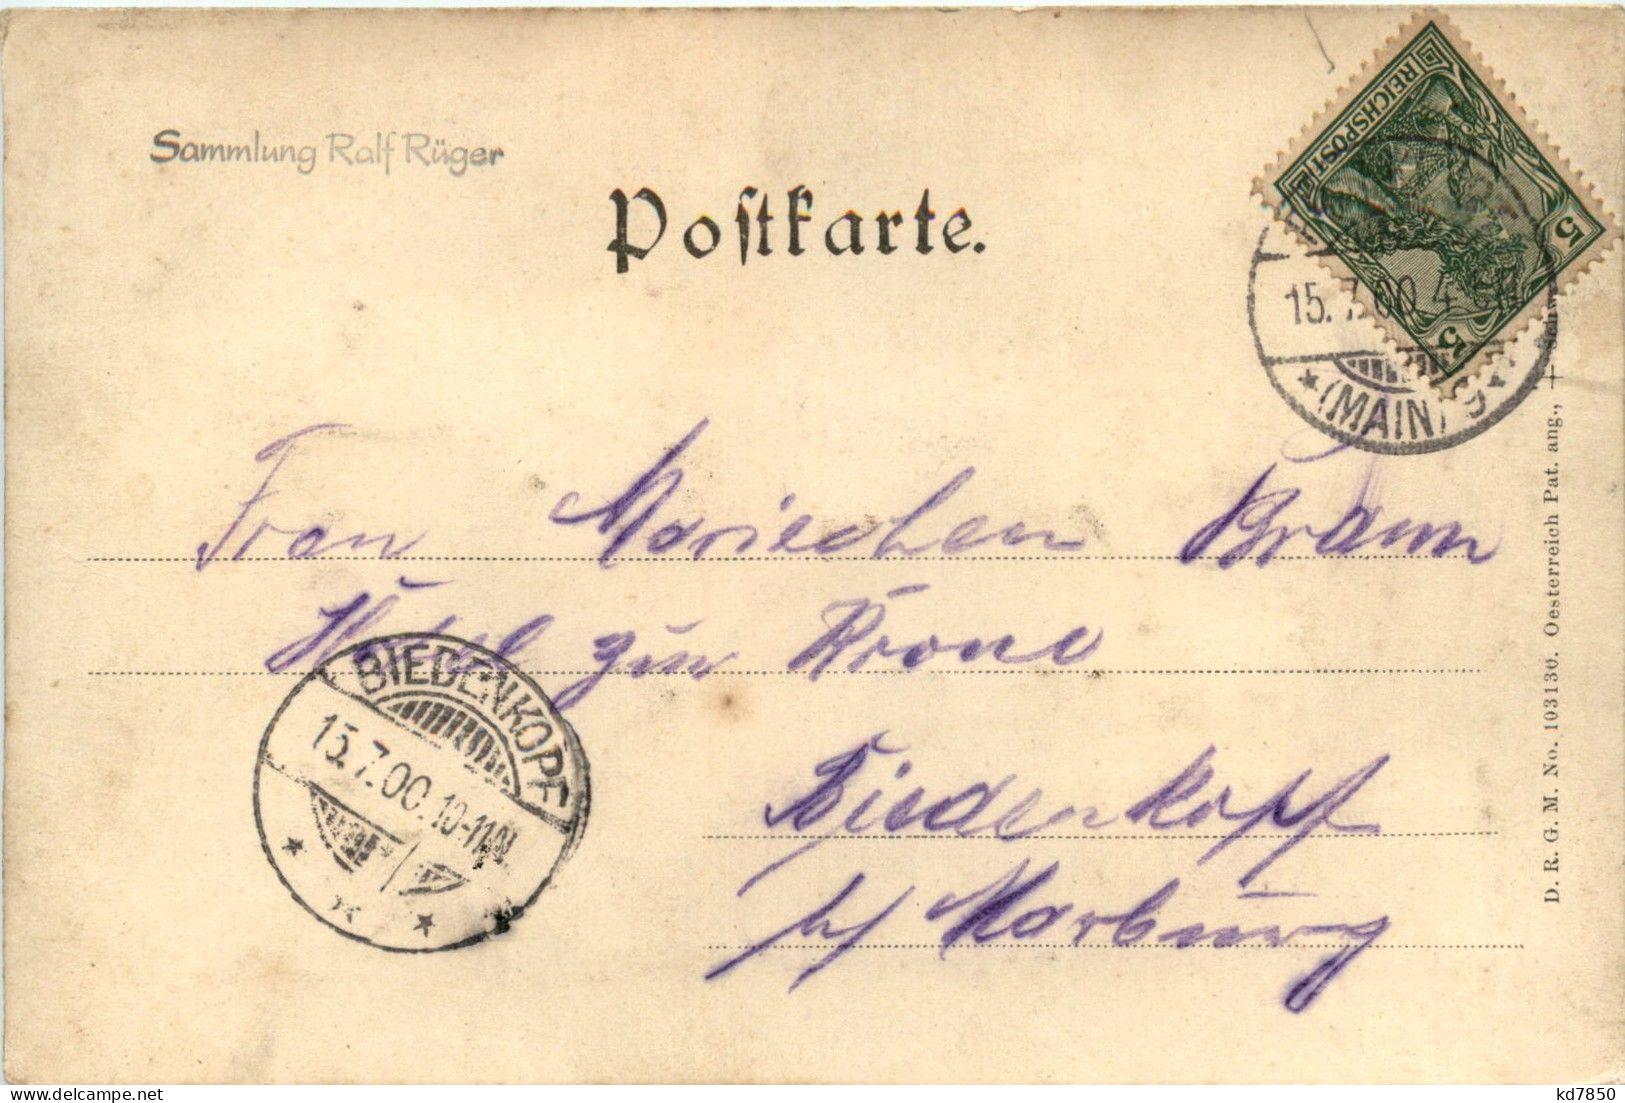 Sammlung Ralf Rüger
Postkarte.
REICHSPOST
5
5
15.7.00 4-5N
(MAIN)
Frau Mariechen Braun
Hotel zur Krone
Biedenkopf
b/ Marburg
BIEDENKOPF
15.7.00.10-11N
D. R. G. M. No. 103130. Oesterreich Pat. ang., + Schw
kd7850